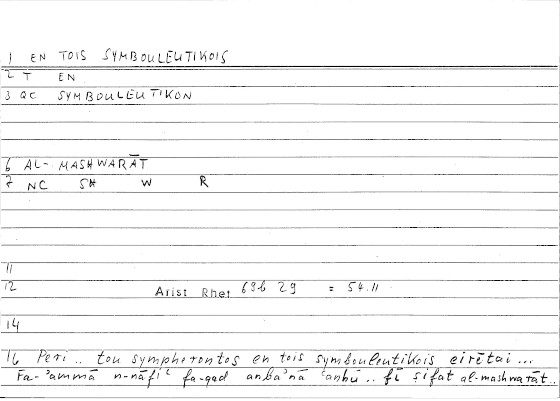 1 EN TOIS SYMBOULEUTIKOIS
2 T EN
3 QC SYMBOULEUTIKON
6 AL- MASHWARĀT
7 NC SH W R
11
12 Arist Rhet 69b 29 = 54.11
14
16 Peri .. tou sympherontos en tois symbouleutikois eirētai ...
Fa-'ammā n-nāfiʿ fa-qad anba'nā ʿanhū .. fī ṣifat al-mashwarāt ..